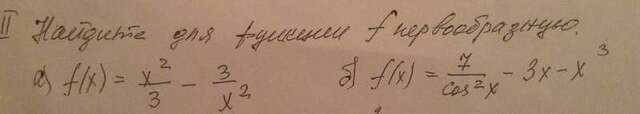 II Найдите для функции f первообразную.
а) f(x) = x²/3 − 3/x² б) f(x) = 7/cos²x − 3x − x³